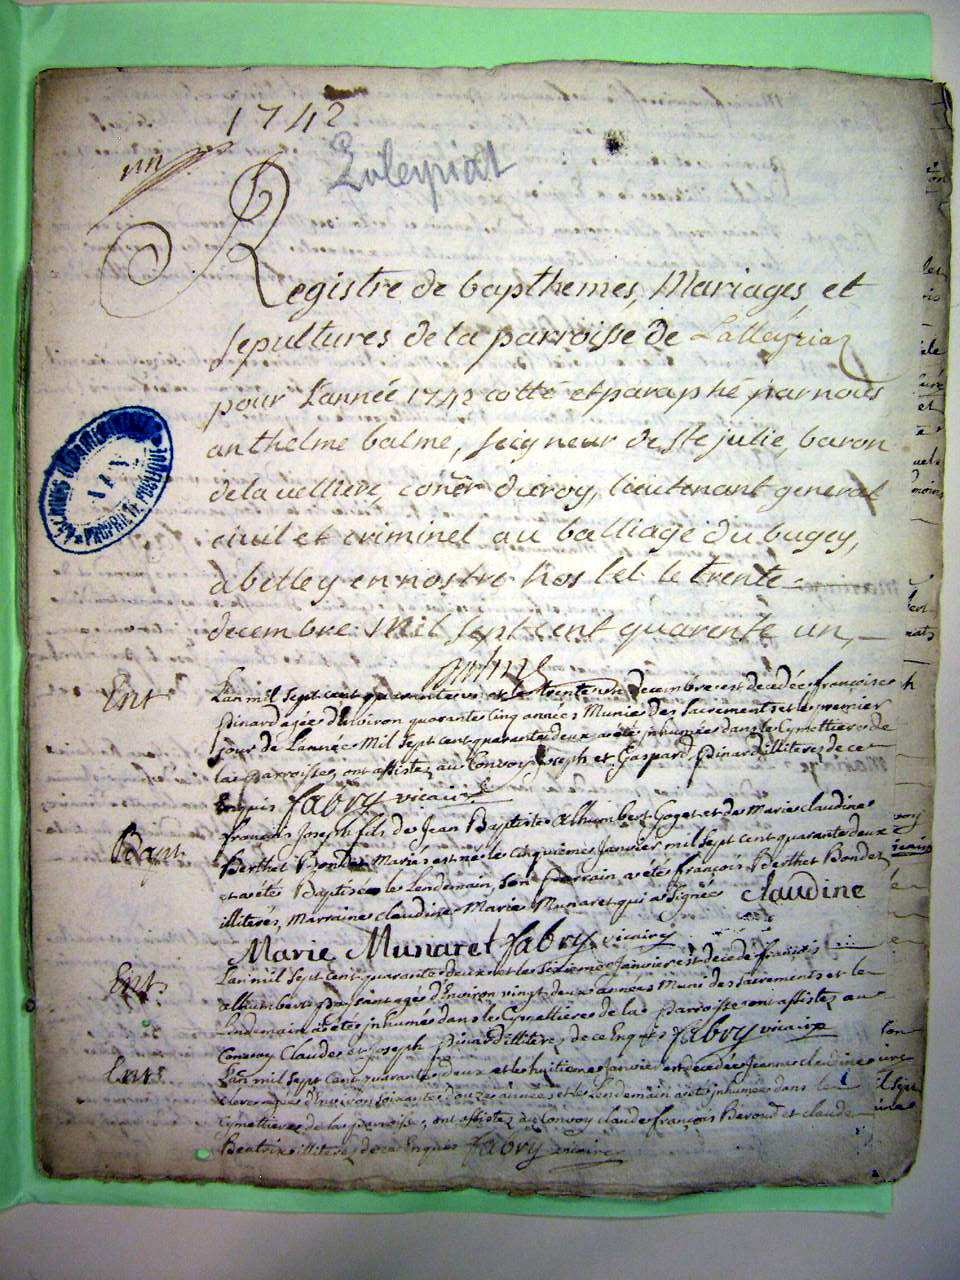 1742
Laleyriat
Registre de bapthemes, Mariages et
sepultures de la parroisse de Lalleyriaz
pour L'année 1742 cotté et paraphé par nous
anthelme balme, seigneur de ste julie, baron
de la velliere, coner du roy, lieutenant general
civil et criminel au balliage du bugey,
a belley en nostre hostel le trente
decembre mil sept cent quarente un,
Ent
L'an mil sept cent quarante un et le trente une decembre est decedée françoise
pinard agée d'environ quarante cinq années Munie des Sacrements et le premier
jour de L'année Mil sept cent quarante deux a été inhumée dans le Cymettiere de
la parroisse, ont assistez au Convoy Joseph et Gaspard pinard illiteres de ce
Enquis fabry vicaire
Bapt
françois Joseph fils de Jean Baptiste Alhumbert Goget et de Marie claudine
Berthet Bondet Mariés est né le cinquieme Janvier mil sept cent quarante deux
et a été Baptisé le Lendemain, Son parrain a été françois Berthet Bondet
illiteres, Marraine claudine Marie Munaret qui a signée claudine
Marie Munaret fabry vicaire
Ent
L'an mil sept cent quarante deux et le sixieme Janvier est decedé françois
alhumbert agé d'Environ vingt deux années Muni des sacrements et le
Lendemain a été inhumé dans le Cymettiere de la parroisse ont assistez au
Convoy Claude et Joseph pinard illiteres de ce Enquis fabry vicaire
Ent
L'an mil sept cent quarante deux et le huitieme Janvier est decedée Jeanne claudine
d'environ soixante douze années et le Lendemain a été inhumée dans le
Cymettiere de la parroisse, ont assistez au Convoy claude françois Beroud et claude
Beatrix illiteres de ce Enquis fabry vicaire